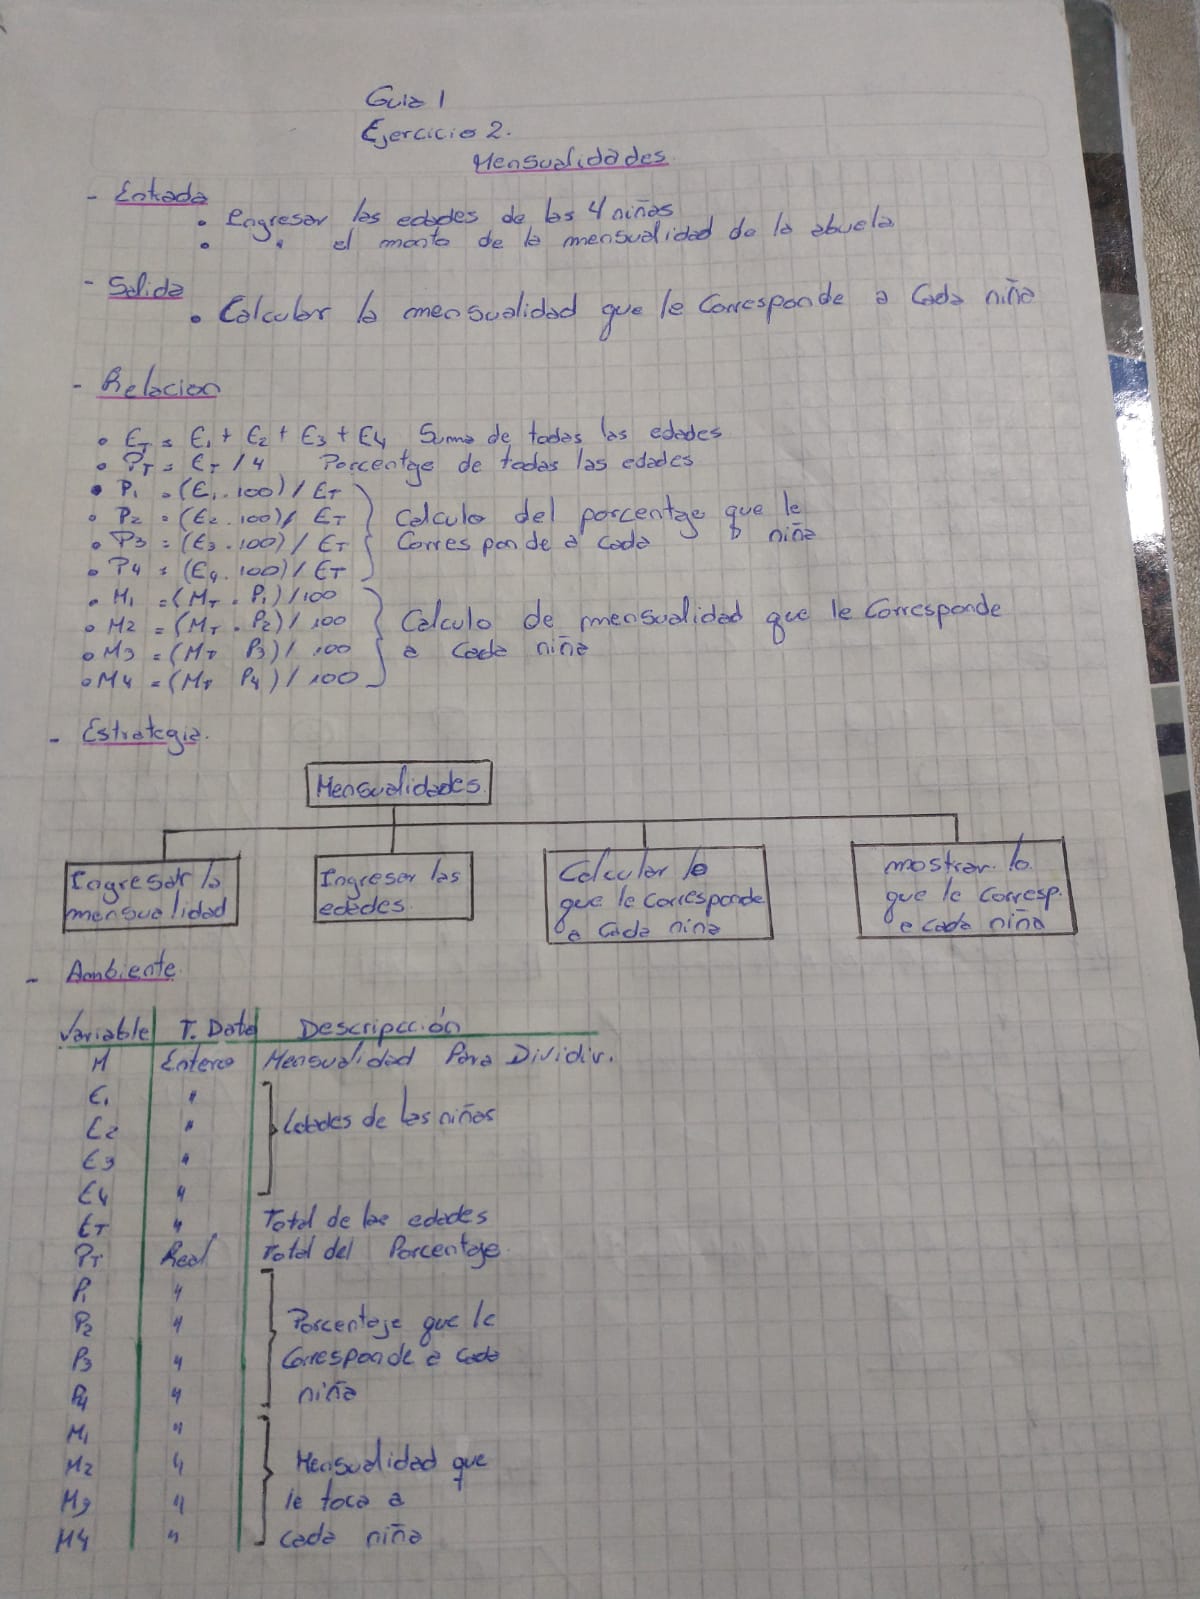 Guia 1
Ejercicio 2.
Mensualidades.
- Entrada
• Ingresar las edades de las 4 niñas
• " el monto de la mensualidad de la abuela
- Salida
• Calcular la mensualidad que le Corresponde a Cada niña
- Relacion
• ET = E1 + E2 + E3 + E4 Suma de todas las edades
• PT = ET / 4 Porcentage de todas las edades
• P1 = (E1 . 100) / ET
• P2 = (E2 . 100) / ET
• P3 = (E3 . 100) / ET
• P4 = (E4 . 100) / ET
Calculo del porcentage que le
Corresponde a cada niña
• M1 = (MT . P1) / 100
• M2 = (MT . P2) / 100
• M3 = (MT P3) / 100
• M4 = (MT P4) / 100
Calculo de mensualidad que le Corresponde
a Cada niña
- Estrategia.
Mensualidades.
Ingresar la
mensualidad
Ingresar las
edades.
Calcular lo
que le corresponde
a Cada nina
mostrar lo
que le corresp.
a cada niña
- Ambiente.
Variable T. Dato Descripcción
M Entero Mensualidad Para Dividir.
E1 "
E2 "
E3 "
E4 "
Edades de las niñas
ET " Total de las edades
PT Real Total del Porcentaje.
P1 "
P2 "
P3 "
P4 "
Porcentaje que le
Corresponde a cada
niña
M1 "
M2 "
M3 "
M4 "
Mensualidad que
le toca a
cada niña